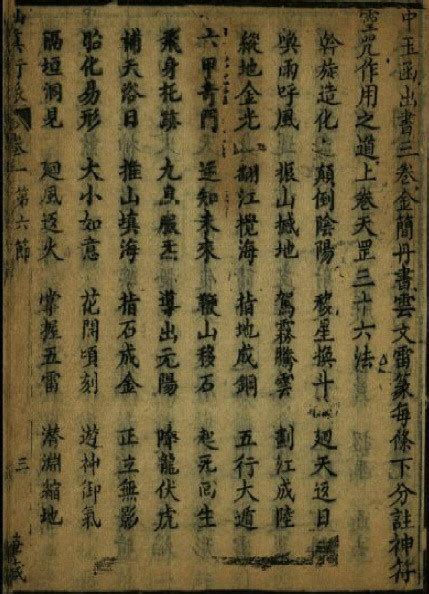 中玉函出書三卷金簡丹書雲文雷篆每條下分註神符
靈咒作用之道上卷天罡三十六法
斡旋造化 顛倒陰陽 移星換斗 廻天返日
喚雨呼風 振山撼地 駕霧騰雲 劃江成陸
縱地金光 翻江攪海 指地成鋼 五行大遁
六甲奇門 逆知未來 鞭山移石 起死回生
飛身托跡 九息服炁 導出元陽 降龍伏虎
補天浴日 推山填海 指石成金 正立無影
胎化易形 大小如意 花開頃刻 遊神御氣
隔垣洞見 廻風返火 掌握五雷 潛淵縮地
卷一第六節 三